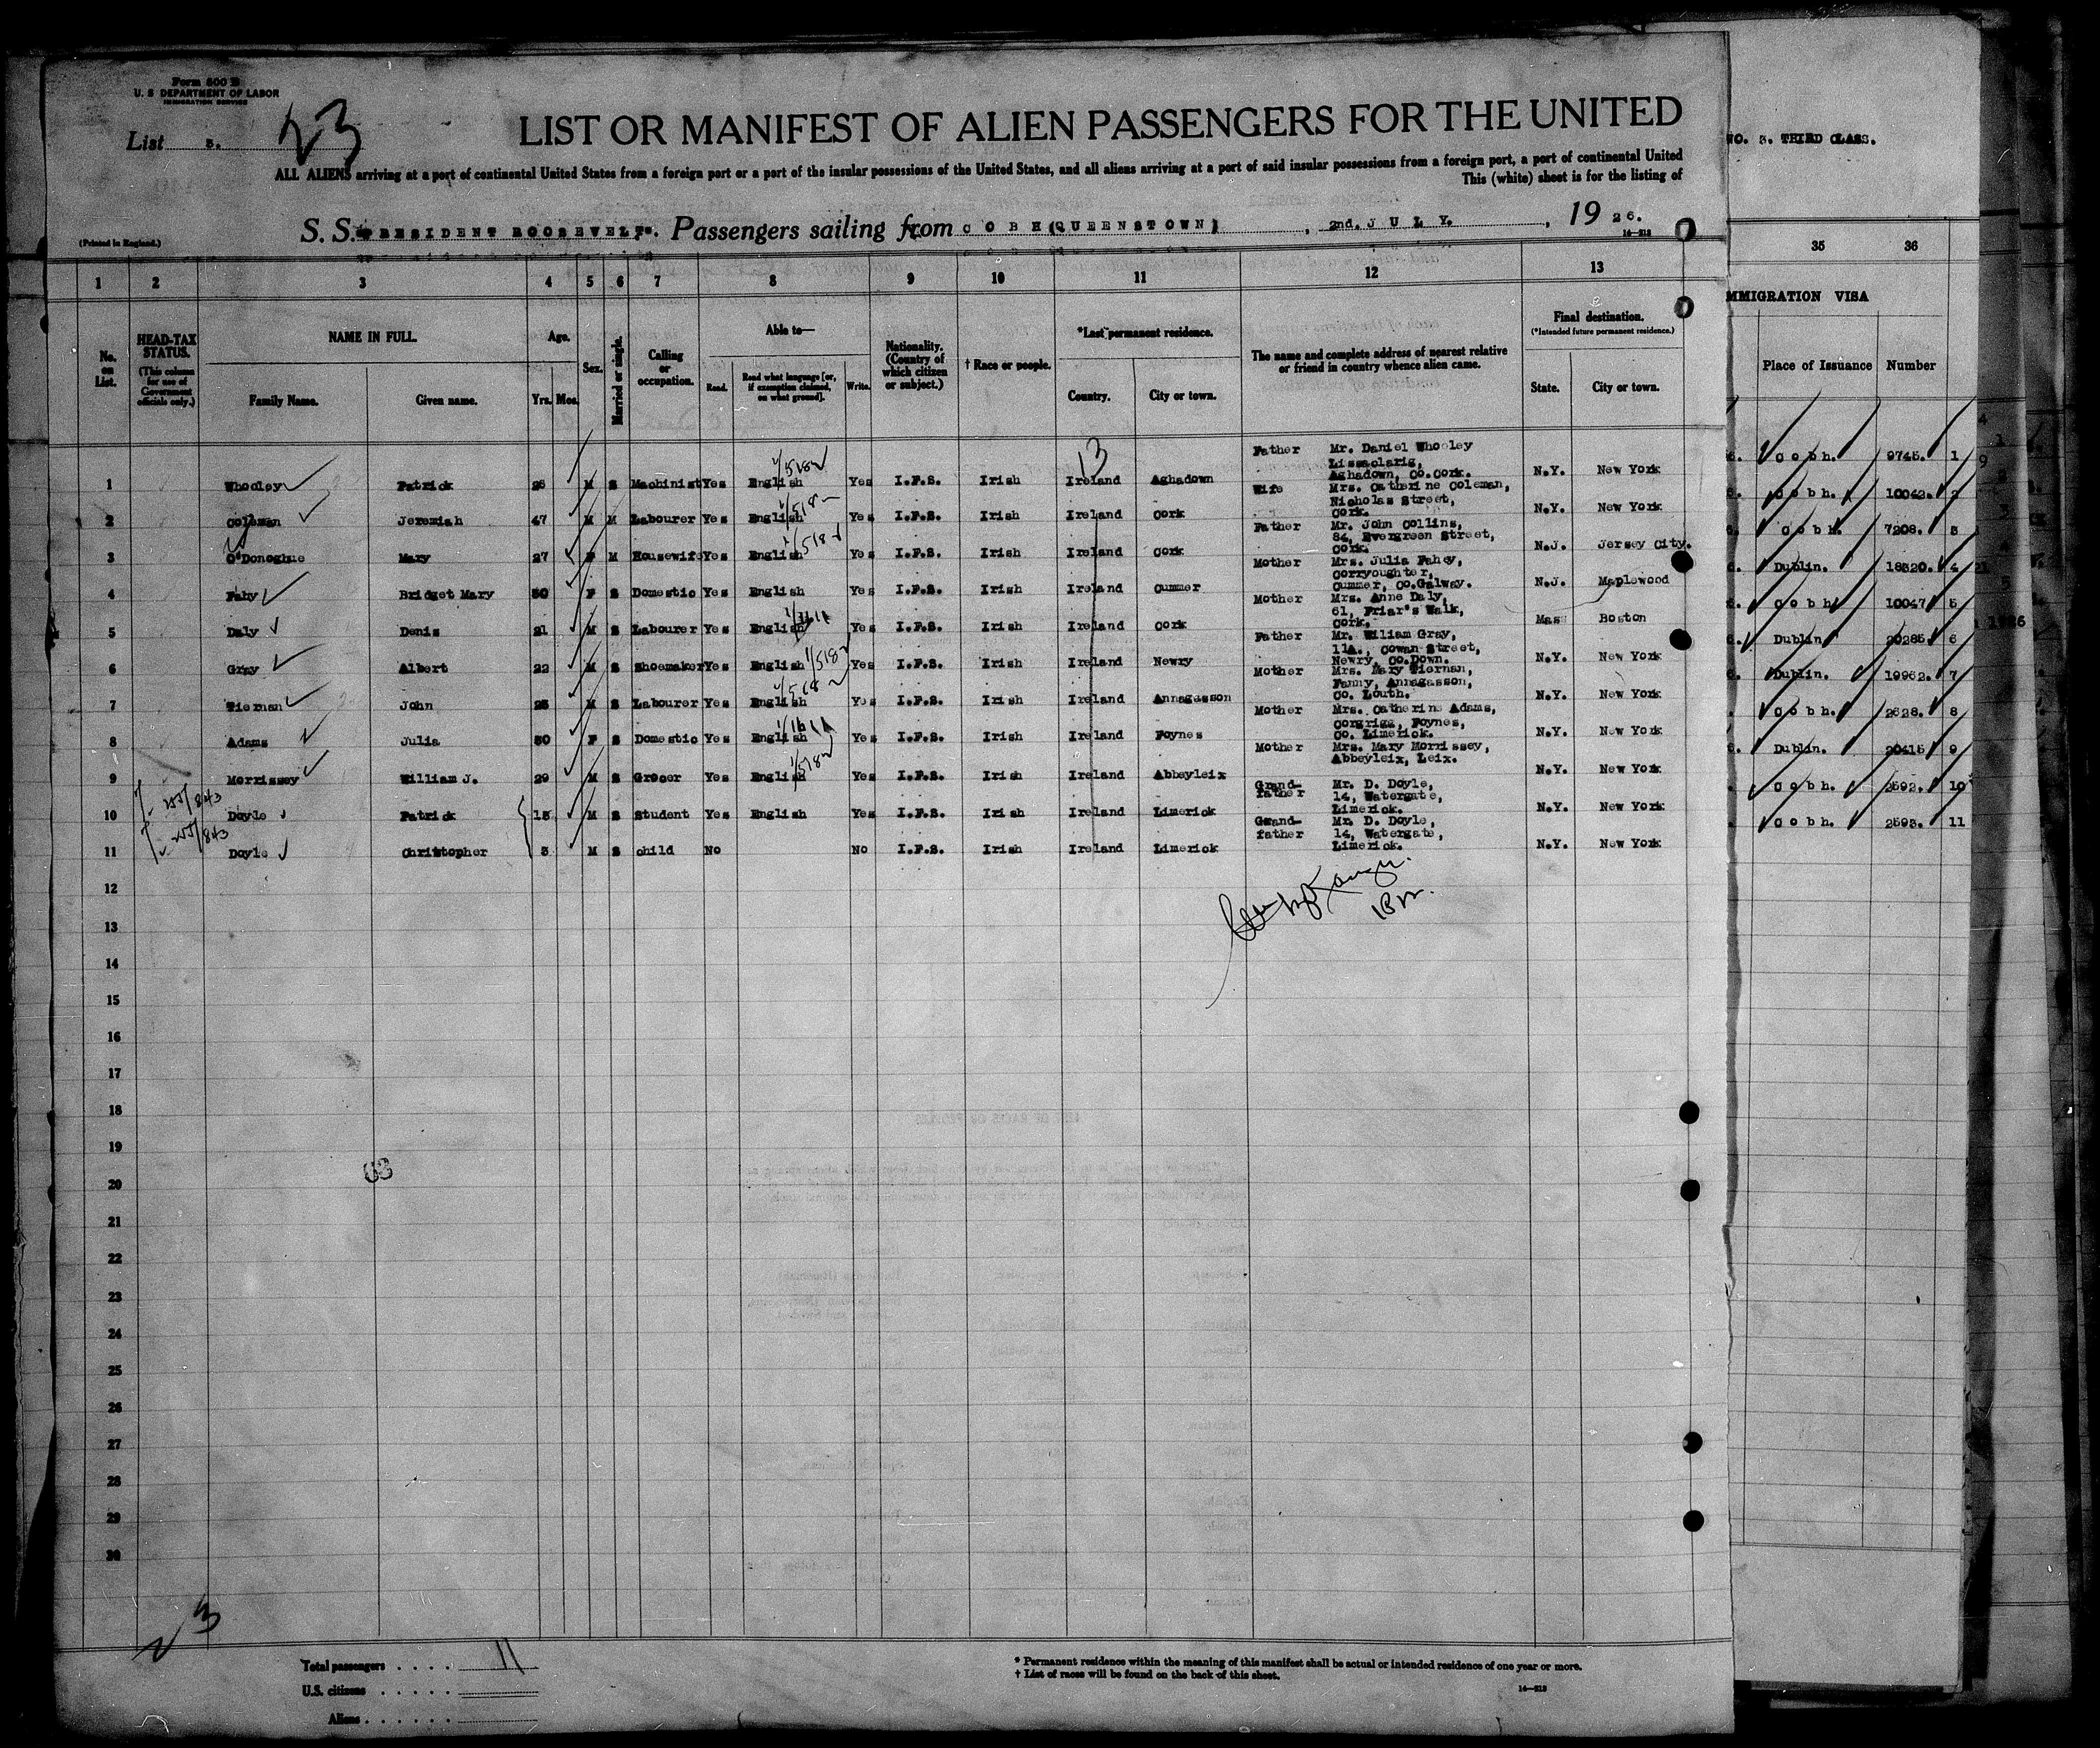 Form 500 B
U. S DEPARTMENT OF LABOR
IMMIGRATION SERVICE
List 3. 23
LIST OR MANIFEST OF ALIEN PASSENGERS FOR THE UNITED
NO. 3. THIRD CLASS.
ALL ALIENS arriving at a port of continental United States from a foreign port or a part of the insular possessions of the United States, and all aliens arriving at a port of said insular possessions from a foreign port, a port of continental United
This (white) sheet is for the listing of
(Printed in England.)
S. S. "PRESIDENT ROOSEVELT". Passengers sailing from COBH(QUEENSTOWN) , 2nd. JULY. , 19 26.
14-313
1 2 3 4 5 6 7 8 9 10 11 12 13 35 36
IMMIGRATION VISA
No. on List.
HEAD-TAX STATUS. (This column for use of Government officials only.)
NAME IN FULL.
Family Name. Given name.
Age.
Yrs. Mos.
Sex.
Married or single.
Calling or occupation.
Able to—
Read. Read what language [or, if exemption claimed, on what ground]. Write.
Nationality. (Country of which citizen or subject.)
† Race or people.
*Last permanent residence.
Country. City or town.
The name and complete address of nearest relative or friend in country whence alien came.
Final destination.
(*Intended future permanent residence.)
State. City or town.
Place of Issuance Number
13
1 Whooley Patrick 26 M S Machinist Yes English Yes I.F.S. Irish Ireland Aghadown Father Mr. Daniel Whooley Lissaclarig, Aghadown, Co.Cork. N.Y. New York Cobh. 9745. 1
2 Coleman Jeremiah 47 M M Labourer Yes English Yes I.F.S. Irish Ireland Cork Wife Mrs. Catherine Coleman, Nicholas Street, Cork. N.Y. New York Cobh. 10042. 2
3 O'Donoghue Mary 27 F M Housewife Yes English Yes I.F.S. Irish Ireland Cork Father Mr. John Collins, 84, Evergreen Street, Cork. N.J. Jersey City. Cobh. 7208. 3
4 Fahy Bridget Mary 30 F S Domestic Yes English Yes I.F.S. Irish Ireland Cummer Mother Mrs. Julia Fahey, Corryoughter, Cummer, Co.Galway. N.J. Maplewood Dublin. 18320. 4
5 Daly Denis 21 M S Labourer Yes English Yes I.F.S. Irish Ireland Cork Mother Mrs. Anne Daly, 61, Friar's Walk, Cork. Mass Boston Cobh 10047 5
6 Gray Albert 22 M S Shoemaker Yes English Yes I.F.S. Irish Ireland Newry Father Mr. Wiliam Gray, 11A., Cowan Street, Newry, Co.Down. N.Y. New York Dublin 20285. 6
7 Tiernan John 25 M S Labourer Yes English Yes I.F.S. Irish Ireland Annagasson Mother Mrs. Mary Tiernan, Fanny, Annagasson, Co. Louth. N.Y. New York Dublin. 19962. 7
8 Adams Julia 30 F S Domestic Yes English Yes I.F.S. Irish Ireland Foynes Mother Mrs. Catherine Adams, Corgrigg, Foynes, Co. Limerick. N.Y. New York Cobh. 2628. 8
9 Morrissey William J. 29 M S Grocer Yes English Yes I.F.S. Irish Ireland Abbeyleix Mother Mrs. Mary Morrissey, Abbeyleix, Leix. N.Y. New York Dublin. 20415 9
10 Doyle Patrick 15 M S Student Yes English Yes I.F.S. Irish Ireland Limerick Grand-father Mr. D. Doyle, 14, Watergate, Limerick. N.Y. New York Cobh. 2592. 10
11 Doyle Christopher 5 M S Child No No I.F.S. Irish Ireland Limerick Grand-father Mr. D. Doyle, 14, Watergate, Limerick. N.Y. New York Cobh. 2593. 11
12
13
14
15
16
17
18
19
20
21
22
23
24
25
26
27
28
29
30
63
Total passengers . . . . 11
U.S. citizens . . . . .
Aliens . . . . . .
* Permanent residence within the meaning of this manifest shall be actual or intended residence of one year or more.
† List of races will be found on the back of this sheet.
14—313